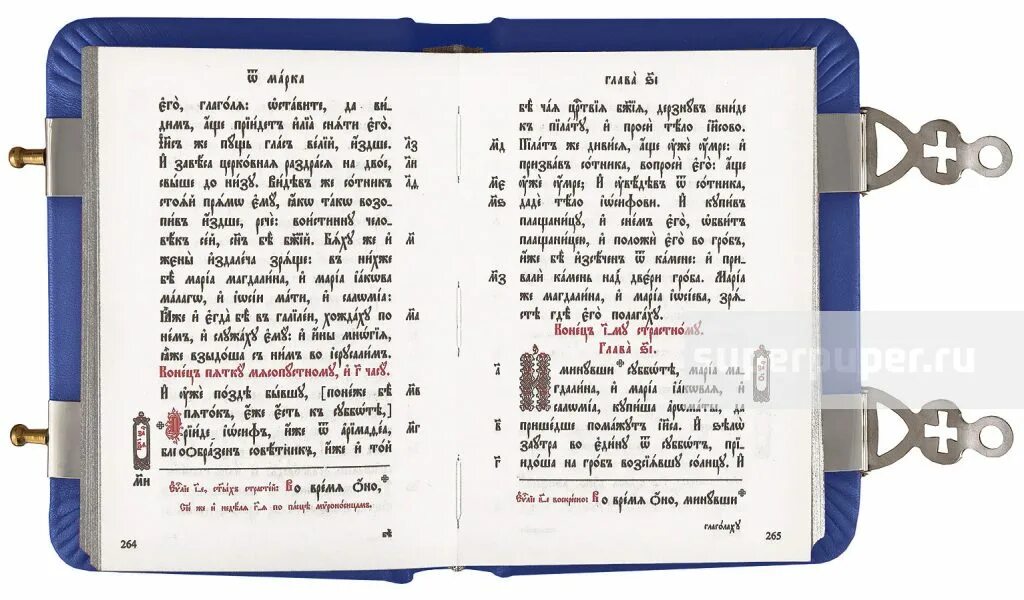 Ѿ ма́рка
є҆го̀, глаго́лѧ: ѡ҆ста́вите, да ви́-
димъ, а҆́ще прїи́детъ и҆лїа̀ снѧ́ти є҆го̀.
І҆и҃съ же пꙋ́щь гла́съ ве́лїй, и҆́здше.
И҆ завѣ́са церко́внаѧ раздра́сѧ на дво́е,
свы́ше до ни́зꙋ. Ви́дѣвъ же со́тникъ
стоѧ́й прѧ́мѡ є҆мꙋ̀, ꙗ҆́кѡ та́кѡ возо-
пи́въ и҆́здше, речѐ: вои́стиннꙋ чело-
вѣ́къ се́й, сн҃ъ бѣ̀ бж҃їй. Бѧ́хꙋ же и҆
жєны̀ и҆здале́ча зрѧ́щѧ: въ ни́хже
бѣ̀ марі́а магдали́на, и҆ марі́а і҆а́кѡва
ма́лагѡ, и҆ і҆ѡсі́и ма́ти, и҆ салѡмі́а:
И҆̀же и҆ є҆гда̀ бѣ̀ въ галїле́и, хожда́хꙋ по
не́мъ, и҆ слꙋжа́хꙋ є҆мꙋ̀: и҆ и҆́ны мнѡ́гїѧ,
ꙗ҆̀же взыдо́ша съ ни́мъ во і҆ерⷭ҇ли́мъ.
Коне́цъ пѧткꙋ̀ мѧсопꙋ́стномꙋ, и҆ г҃ часꙋ̀.
И҆ ᲂу҆жѐ по́здѣ бы́вшꙋ, [поне́же бѣ̀
пѧто́къ, є҆́же є҆́сть къ сꙋббѡ́тѣ,]
Прїи́де і҆ѡ́сифъ, и҆́же ѿ а҆рїмаде́а,
благоѡбра́зенъ совѣ́тникъ, и҆́же и҆ то́й
л҃з
л҃и
л҃ѳ
м҃
м҃а
м҃в
м҃г
м҃и
Є҆ѵⷢ҇лїе і҃-е, ст҃ы́хъ страсте́й: Во вре́мѧ ѻ҆́но,
Сїѐ же и҆ недѣ́лѧ г҃-ѧ по па́сцѣ мѷроно́сицамъ.
бѣ̀
264
Глава̀ ѕ҃і
бѣ̀ ча́ѧ црⷭ҇твїѧ бж҃їѧ, дерзнꙋ́въ вни́де
къ пїла́тꙋ, и҆ просѝ тѣ́ло і҆и҃сово.
Пїла́тъ же диви́сѧ, а҆́ще ᲂу҆жѐ ᲂу҆́мре: и҆
призва́въ со́тника, вопросѝ є҆го̀: а҆́ще
ᲂу҆жѐ ᲂу҆́мре; И҆ ᲂу҆вѣ́дѣвъ ѿ со́тника,
дадѐ тѣ́ло і҆ѡ́сифови. И҆ кꙋпи́въ
плащани́цꙋ, и҆ сне́мъ є҆го̀, ѡ҆бви́тъ
плащани́цею, и҆ положѝ є҆го̀ во гро́бъ,
и҆́же бѣ̀ и҆зсѣ́ченъ ѿ ка́мене: и҆ при-
валѝ ка́мень над̾ две́ри гро́ба. Марі́а
же магдали́на, и҆ марі́а і҆ѡсі́ева, зрѧ́-
стѣ гдѣ̀ є҆го̀ полага́хꙋ.
Коне́цъ і҃-мꙋ стра́стномꙋ.
Глава̀ ѕ҃і.
И҆ минꙋ́вши сꙋббѡ́тѣ, марі́а ма-
гдали́на, и҆ марі́а і҆а́кѡвлѧ, и҆
салѡмі́а, кꙋпи́ша а҆рѡма́ты, да
прише́дше пома́жꙋтъ і҆и҃са. И҆ ѕѣлѡ̀
заꙋ́тра во є҆ди́нꙋ ѿ сꙋббѡ́тъ, прїи-
до́ша на гро́бъ возсїѧ́вшꙋ со́лнцꙋ. И҆
м҃д
м҃є
м҃ѕ
м҃з
а҃
в҃
г҃
Є҆ѵⷢ҇лїе в҃-е воскре́сно: Во вре́мѧ ѻ҆́но, минꙋ́вши
глаго́лахꙋ
265
superpuper.ru